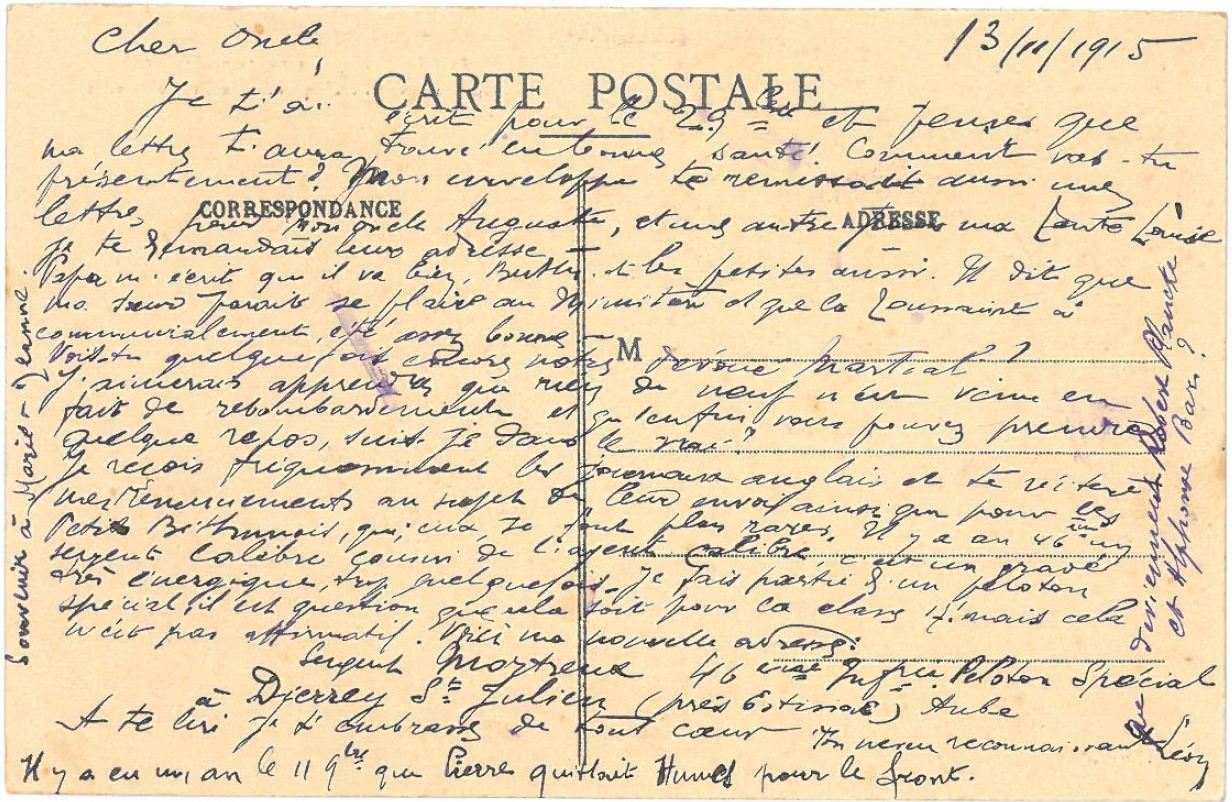 13/11/1915
Cher Oncle,
CARTE POSTALE
Je t'ai écrit pour le 29 8bre et pense que
ma lettre t'aura trouvé en bonne santé. Comment vas-tu
présentement? Mon enveloppe te remettait aussi une
lettre pour mon oncle Auguste, et une autre pour ma tante Louise
CORRESPONDANCE
ADRESSE
je te demandais leur adresse
Papa m'écrit qu'il va bien, Berthe et les petites aussi. Il dit que
ma sœur parait se plaire au et que la Toussaint à
commercialement, été assez bonne
Vois-tu quelquefois encore notre dévoué Martial?
M
J'aimerais apprendre que rien de neuf n'est venu en
fait de rebombardements et qu'enfin vous pouvez prendre
quelque repos, suis-je dans le vrai?
Je reçois fréquemment les journaux anglais et te réitère
mes remerciements au sujet de leur envoi ainsi que pour les
Petits Béthunois, qui, eux, se font plus rares. Il y a au 46ème un
sergent Calibre cousin de l'agent Calibre, c'est un brave
très énergique, trop quelquefois. Je fais partie d'un peloton
spécial, il est question que cela soit pour la classe 17 mais cela
n'est pas affirmatif. Voici ma nouvelle adresse:
Sergent 46ème Infrie Peloton Spécial
à Dierrey St Julien (près Estissac) Aube
A te lire je t'embrasse de tout cœur
Ton neveu reconnaissant
Il y a eu un an le 11 9bre que Pierre quittait pour le front.
Souvenir à Marie - Jeanne.
Que deviennent Robert Plancke
et Alphonse Bar?